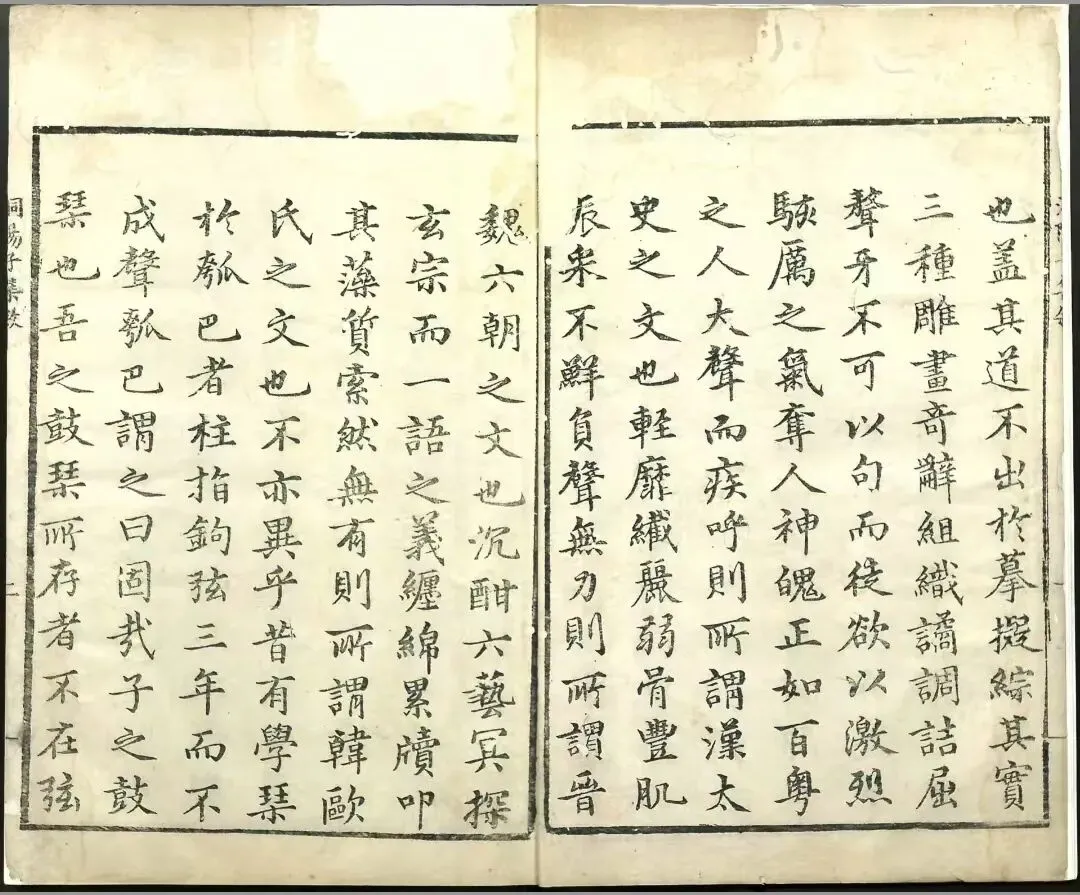 也盖其道不出扵摹擬綜其實
三種雕畫竒辭組織譎調詰屈
聱牙不可以句而徒欲以激烈
駭厲之氣奪人神魄正如百粤
之人大聲而疾呼則所謂漢太
史之文也輕靡纎麗弱骨豐肌
辰采不鮮負聲無力則所謂晉
魏六朝之文也沉酣六藝冥探
玄宗而一語之義纒綿累牘叩
其藻質索然無有則所謂韓歐
氏之文也不亦異乎昔有學琹
扵瓠巴者柱指鉤弦三年而不
成聲瓠巴謂之曰固哉子之鼓
琹也吾之鼓琹所存者不在弦
洞陽子集